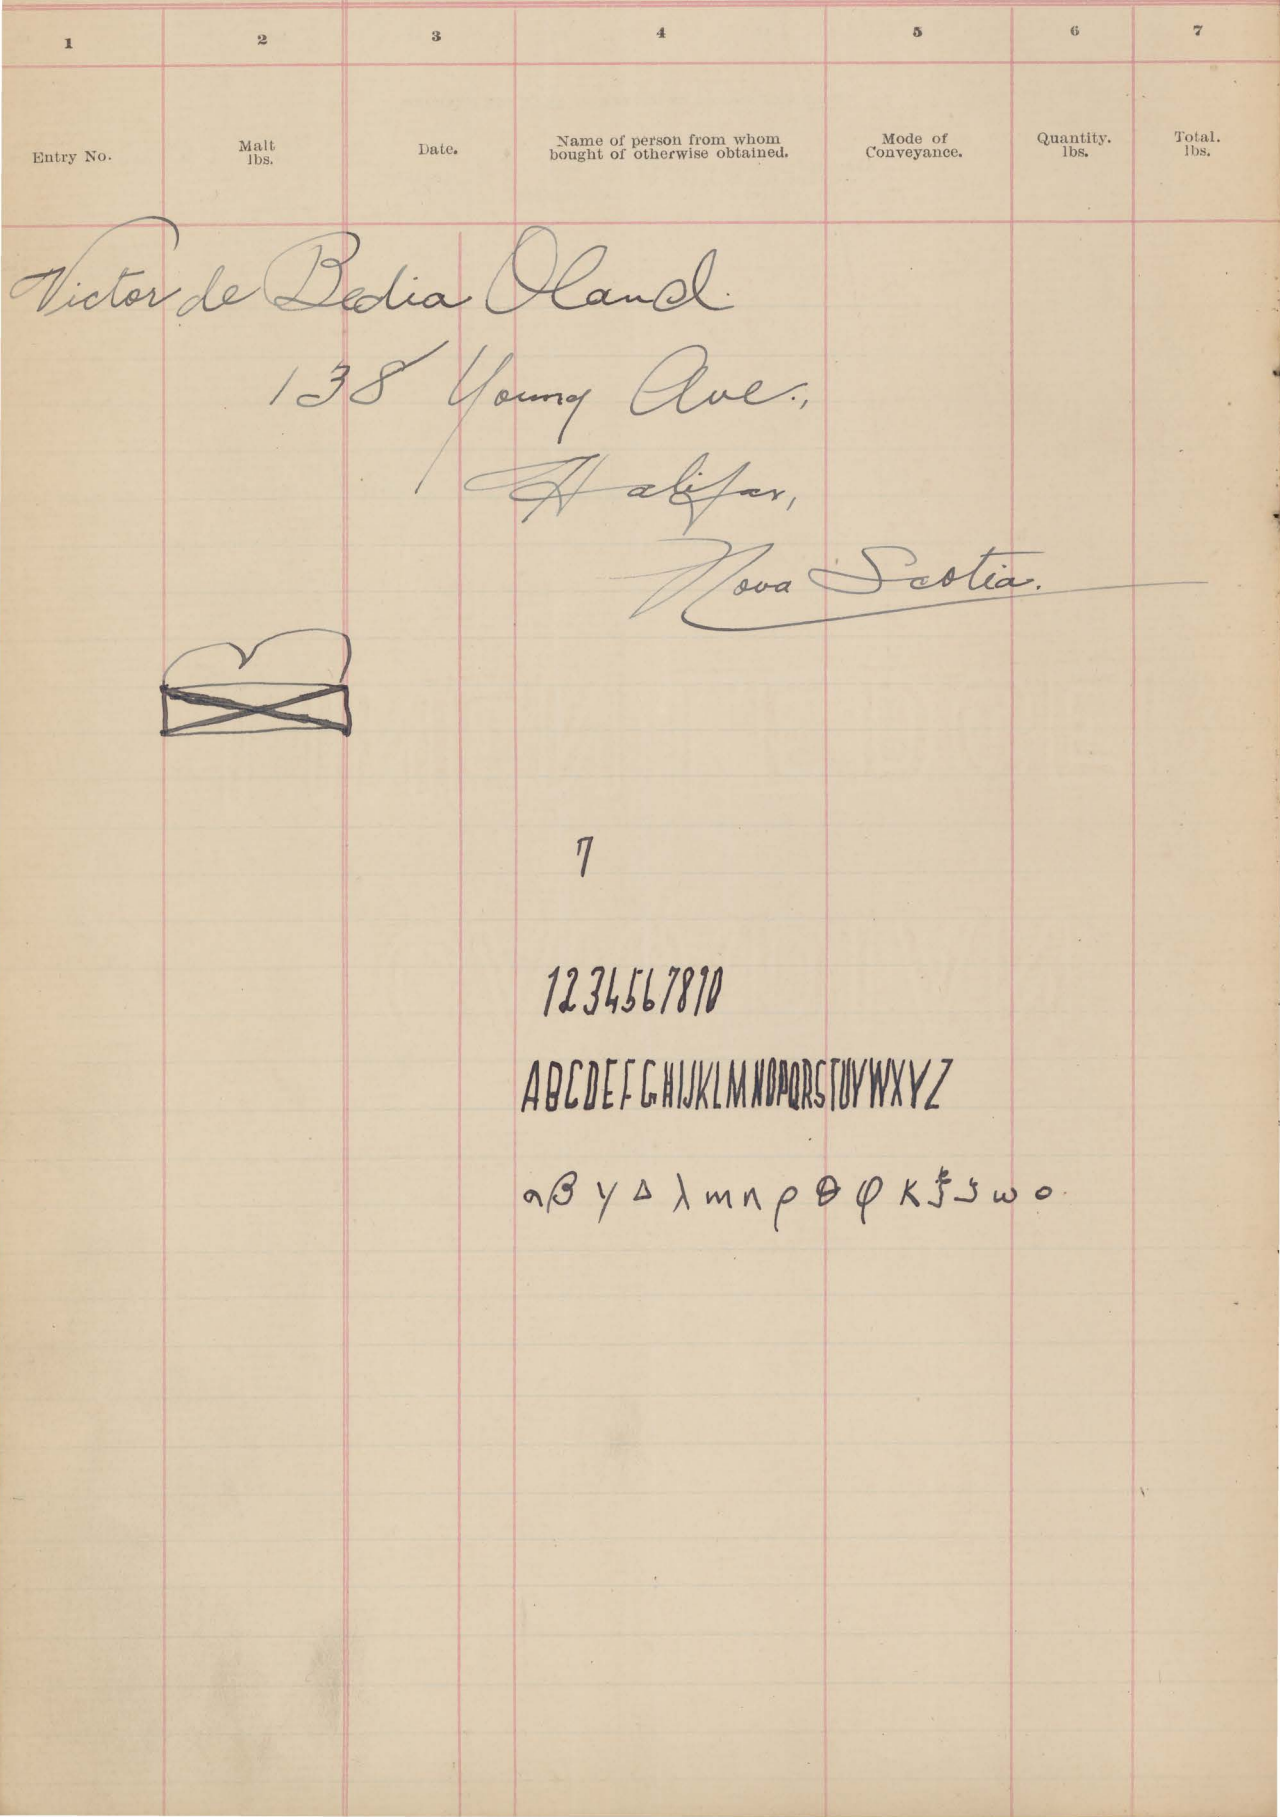 1 2 3 4 5 6 7
Entry No. Malt lbs. Date. Name of person from whom bought of otherwise obtained. Mode of Conveyance. Quantity. lbs. Total. lbs.
Victor de Bedia Oland.
138 Young Ave.,
Halifax,
Nova Scotia.
7
12345678910
ABCDEFGHIJKLMNOPQRSTUVWXYZ
α β γ Δ λ m n ρ θ φ κ ξ ζ ω o